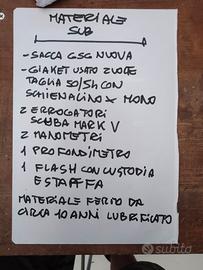 MATERIALE
SUB
- SACCA GSG NUOVA
- GIAKET USATO 2 VOLTE
TAGLIA 50/54 CON
SCHIENALINO X MONO
2 ERROGATORI
SCUBA MARK V
2 MANOMETRI
1 PROFONDIMETRO
1 FLASH CON CUSTODIA
E STAFFA
MATERIALE FERMO DA
CIRCA 10 ANNI LUBRIFICATO
subito